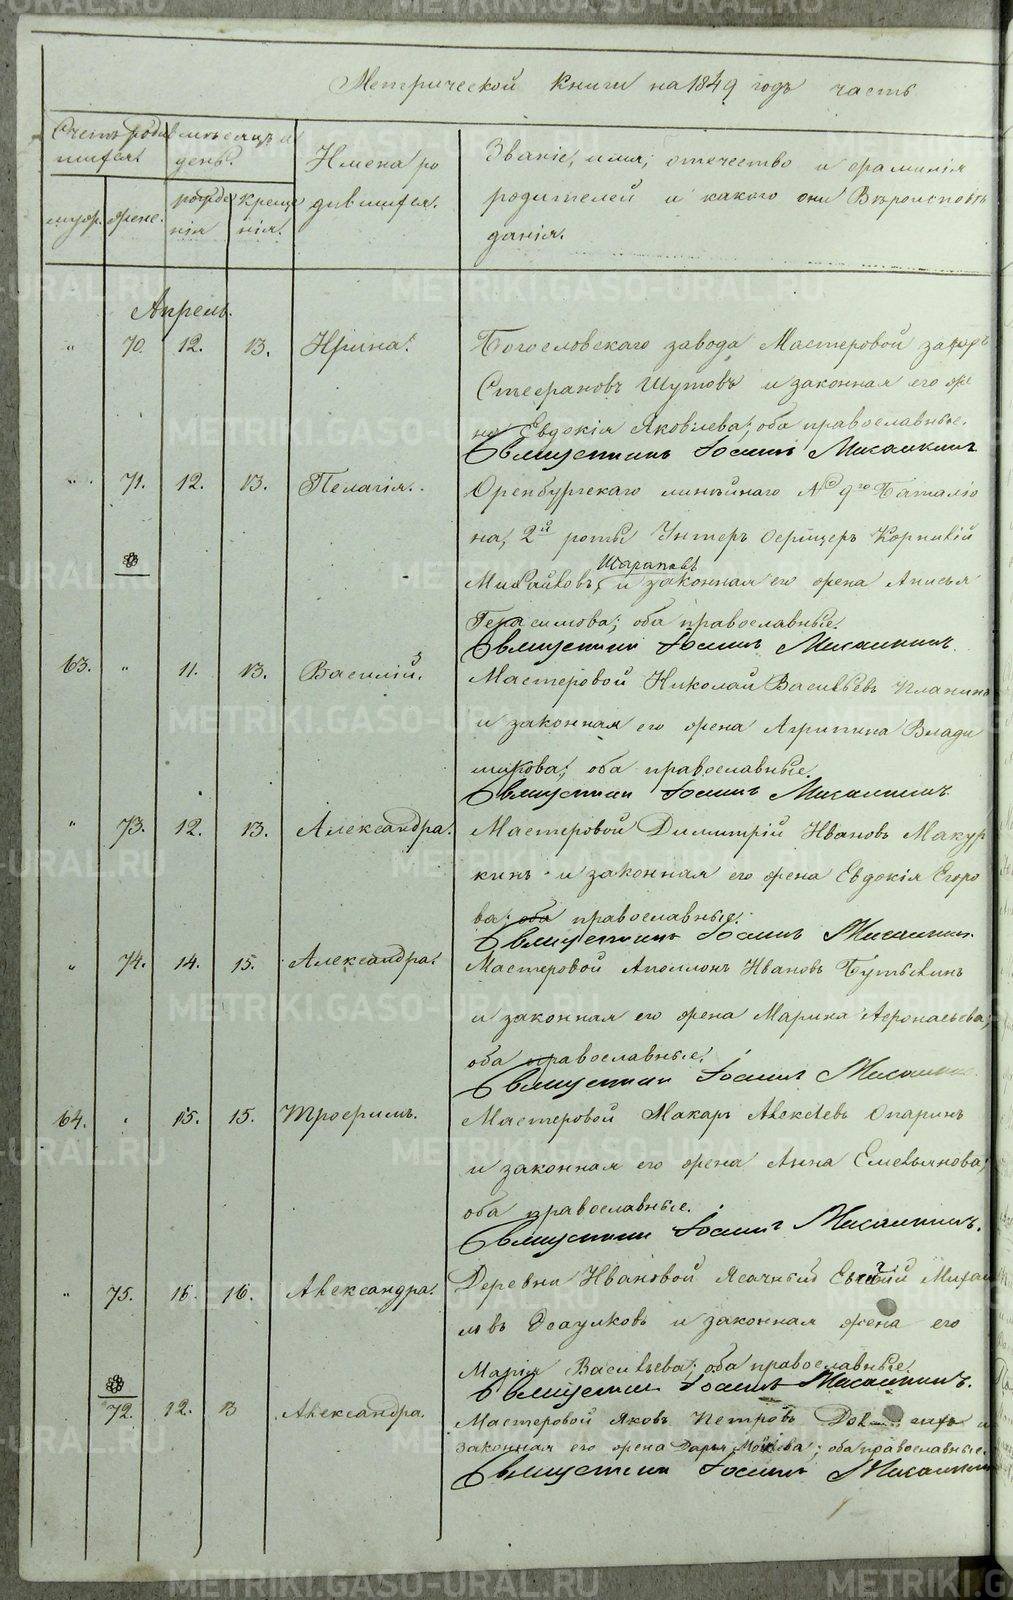 Метрической Книги на 1849 годъ часть
Счетъ родив
шихся.
Мѣсяцъ и
день.
Имена ро
дившихся.
Званіе, имя, отечество и фамилія
родителей и какого они Вѣроисповѣ
данія.
муж.
жене.
рожде
нія
креще
нія.
Апрель.
" 70. 12. 13. Ирина.
Богословскаго завода Мастеровой Захаръ
Стефановъ Шутовъ и законная его же
на Евдокія Яковлева; оба православные.
Священникъ Іоаннъ
" 71. 12. 13. Пелагія.
Оренбургскаго линѣйнаго № 9го Баталіо
на, 2й роты Унтеръ Офицеръ Корнилій
Михайловъ Шараповъ и законная его жена Анисья
Герасимова; оба православные.
Священникъ Іоаннъ
63. " 11. 13. Василій.
Мастеровой Николай Васильевъ
и законная его жена Агрипина Влади
мирова; оба православные.
Священникъ Іоаннъ
" 73. 12. 13. Александра.
Мастеровой Димитрій Ивановъ Макур
кинъ и законная его жена Евдокія Егоро
ва; оба православные.
Священникъ Іоаннъ
" 74. 14. 15. Александра.
Мастеровой Аполлонъ Ивановъ
и законная его жена Марина Афонасьева;
оба православные.
Священникъ Іоаннъ
64. " 15. 15. Трофимъ.
Мастеровой Макаръ Алексѣевъ Опаринъ
и законная его жена Анна Емельянова;
оба православные.
Священникъ Іоаннъ
" 75. 16. 16. Александра.
Деревни Ивановой Ясачный Евгеній Михаи
ловъ Есаулковъ и законная жена его
Марія Васильева; оба православные.
Священникъ Іоаннъ
72. 12. 13 Александра.
Мастеровой Яковъ Петровъ и
законная его жена Дарья; оба православные.
Священникъ Іоаннъ
METRIKI.GASO-URAL.RU